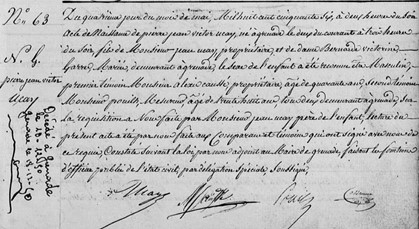 N.º 63
N. G.
pierre jean victor
ucay
Décédé à Grenade
Du quatrième jour du mois de mai, Mil huit cent cinquante six, à dix heures du
Acte de Naissance de pierre jean victor ucay, né à grenade le deux du courant à trois heures
du soir, fils de Monsieur jean ucay, propriétaire, et de dame Bernarde victorine
mariés, demeurant à grenade, le sexe de l'enfant a été reconnu être Masculin,
premier témoin Monsieur alexis causse, propriétaire, âgé de quarante ans, Second témoin
Monsieur âgé de trente huit ans, tous deux demeurant à grenade, Sur
la requisition à nous faite par Monsieur jean ucay père de l'enfant, lecture du
présent acte a été par nous faite aux Comparant et témoins qui ont signé avec nous de
ce requis, Constaté suivant la loi par nous adjoint au Maire de grenade, faisant les fonctions
d'officier public de l'état civil, par délégation spéciale, Soussigné,
Ucay